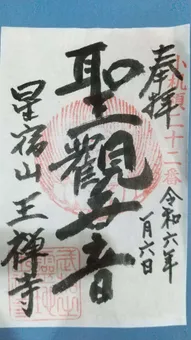 奉拝
武相観音二十二番
令和六年
一月六日
聖観世音
星宿山 王禅寺